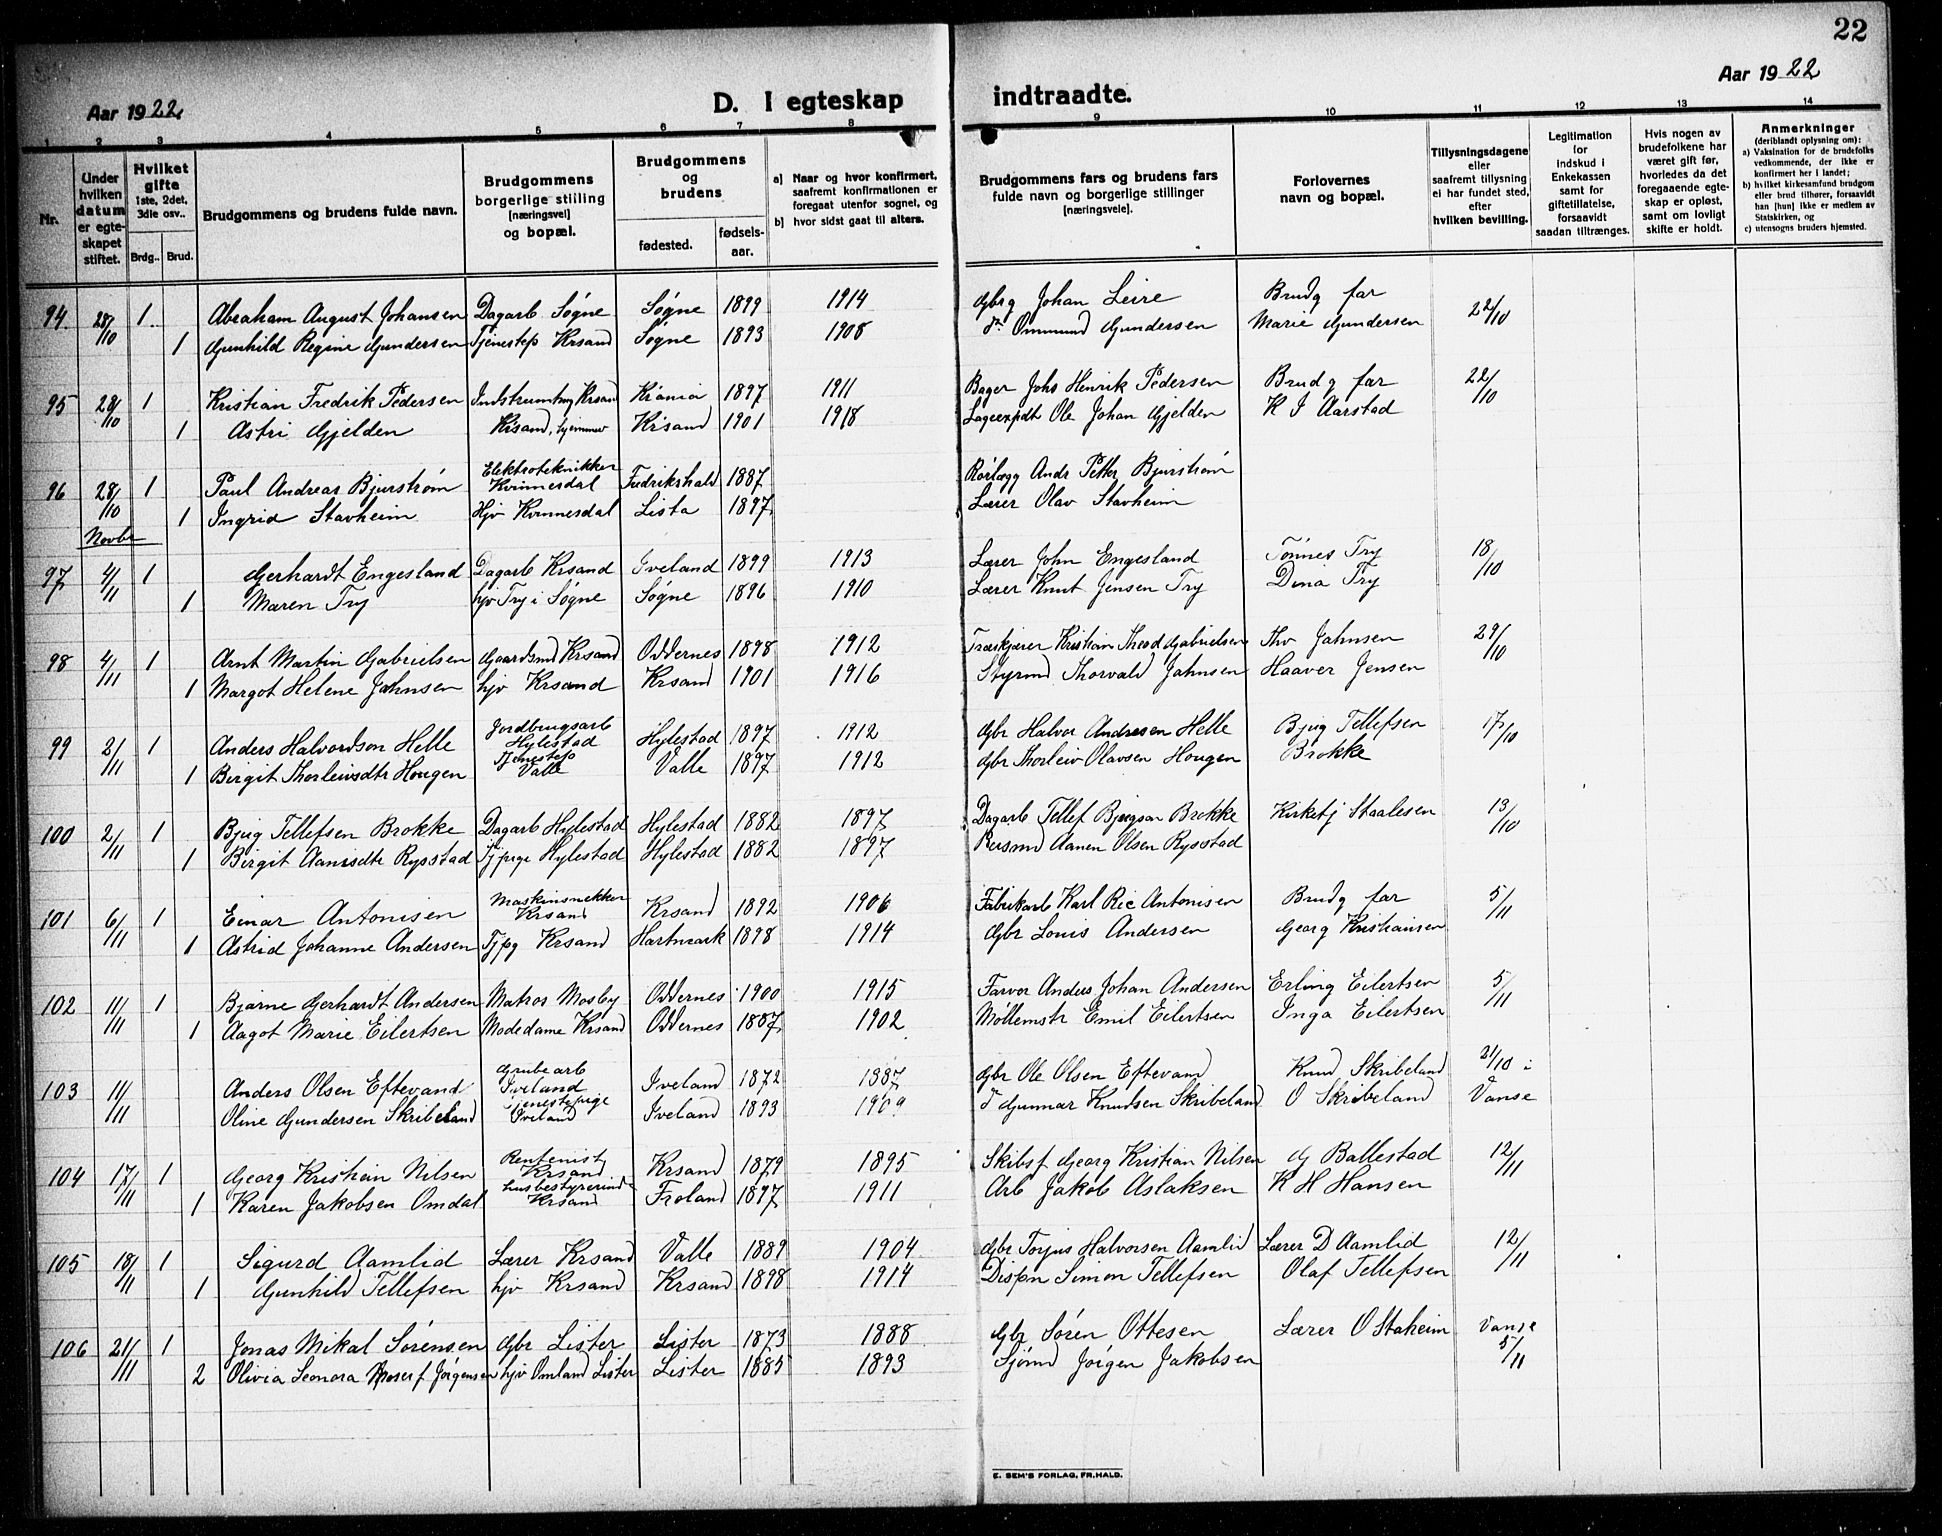 22
Aar 1922
D. I egteskap
indtraadte.
Aar 1922
1 2 3 4 5 6 7 8 9 10 11 12 13 14
Nr.
Under hvilken datum er egteskapet stiftet.
Hvilket gifte 1ste, 2det, 3die osv..
Brdg.. Brud.
Brudgommens og brudens fulde navn.
Brudgommens borgerlige stilling [næringsvei] og bopæl.
Brudgommens og brudens
fødested. fødselsaar.
a) Naar og hvor konfirmert, saafremt konfirmationen er foregaat utenfor sognet, og
b) hvor sidst gaat til alters.
Brudgommens fars og brudens fars fulde navn og borgerlige stillinger [næringsveie].
Forlovernes navn og bopæl.
Tillysningsdagene eller saafremt tillysning ei har fundet sted, efter hvilken bevilling.
Legitimation for Indskud i Enkekassen samt for giftetillatelse, forsaavidt saadan tiltrænges.
Hvis nogen av brudefolkene har været gift før, hvorledes da det foregaaende egteskap er opløst, samt om lovligt skifte er holdt.
Anmerkninger (deriblandt oplysning om):
a) Vaksination for de brudefolks vedkommende, der ikke er konfirmert her i landet;
b) hvilket kirkesamfund brudgom eller brud tilhører, forsaavidt han [hun] ikke er medlem av Statskirken, og
c) utensogns bruders hjemsted.
94 28/10 1 Abraham August Johansen Dagarb Søgne Søgne 1899 1914 Gbrg Johan Leire Brudg far 22/10
1 Gunhild Regine Gundersen Tjenestep Krsand Søgne 1893 1908 do Ommund Gundersen Marie Gundersen
95 28/10 1 Kristian Fredrik Pedersen Krsand Kr.ania 1897 1911 Bager Johs Henrik Pedersen Brudg far 22/10
1 Astri Gjelden Krsand, hjemme Kr.sand 1901 1918 Lagerexpdt Ole Johan Gjelden K J Aarstad
96 28/10 1 Paul Andreas Bjurstrøm Elektrotekniker Kvinnesdal Fredrikshald 1887 Rørlegg Andr Petter Bjurstrøm
1 Ingrid Stavheim Hjv Kvinnesdal Lista 1897 Lærer Olav Stavheim
Novbr
97 4/11 1 Gerhardt Engesland Dagarb Krsand Iveland 1899 1913 Lærer John Engesland Tønnes Try 18/10
1 Maren Try hjv Try i Søgne Søgne 1896 1910 Lærer Knut Jensen Try Dina Try
98 4/11 1 Arnt Martin Gabrielsen Gaardsmd Krsand Oddernes 1898 1912 Træskjærer Kristian Theod Gabrielsen Thv Jahnsen 29/10
1 Margot Helene Jahnsen hjv Krsand Krsand 1901 1916 Styrmd Thorvald Jahnsen Haaver Jensen
99 2/11 1 Anders Halvordson Helle Jordbrugsarb Hylestad Hylestad 1897 1912 Gbr Halvor Andresen Helle Bjug Tellefsen 17/10
1 Birgit Thorleivsdtr Hougen Tjenestep Valle Valle 1897 1912 Gbr Thorleiv Olavsen Hougen Brokke
100 2/11 1 Bjug Tellefsen Brokke Dagarb Hylestad Hylestad 1882 1897 Dagarb Tellef Bjugson Brokke Kirketj Staalesen 13/10
1 Birgit Aanisdtr Rysstad Tjpige Hylestad Hylestad 1882 1897 Aanen Olsen Rysstad
101 6/11 1 Einar Antonisen Maskinsnekker Krsand Krsand 1892 1906 Fabrikarb Karl Ric Antonisen Brudg far 5/11
1 Astrid Johanne Andersen Tjpg Krsand Hartmark 1898 1914 Gbr Louis Andersen Georg Kristiansen
102 11/11 1 Bjarne Gerhardt Andersen Matros Mosby Oddernes 1900 1915 Farver Anders Johan Andersen Erling Eilertsen 5/11
1 Aagot Marie Eilertsen Modedame Krsand Oddernes 1887 1902 Møllemstr Emil Eilertsen Inga Eilertsen
103 11/11 Anders Olsen Eftevand Grubearb Iveland Iveland 1872 1887 Gbr Ole Olsen Eftevand Knud Skribeland 21/10 i
Oline Gundersen Skribeland Tjenestepige Iveland Iveland 1893 1909 Gunnar Knudsen Skribeland O Skribeland Vanse
104 17/11 1 Georg Kristian Nilsen Rentenist Krsand Krsand 1879 1895 Skibsf Georg Kristian Nilsen G Ballestad 12/11
1 Karen Jakobsen Omdal husbestyrerinde Krsand Froland 1897 1911 Arb Jakob Aslaksen K H Hansen
105 18/11 1 Sigurd Aamlid Lærer Krsand Valle 1889 1904 Gbr Torjus Halvorsen Aamlid Lærer D Aamlid 12/11
1 Gunhild Tellefsen hjv Krsand Krsand 1898 1914 Dispn Simon Tellefsen Olaf Tellefsen
106 21/11 1 Jonas Mikal Sørensen Gbr Lister Lister 1873 1888 Gbr Søren Ottesen Lærer O Staheim Vanse 5/11
2 Olivia Leonora f Jørgensen hjv Omland Lister Lister 1885 1893 Sjømd Jørgen Jakobsen
E. SEM'S FORLAG, FR.HALD.